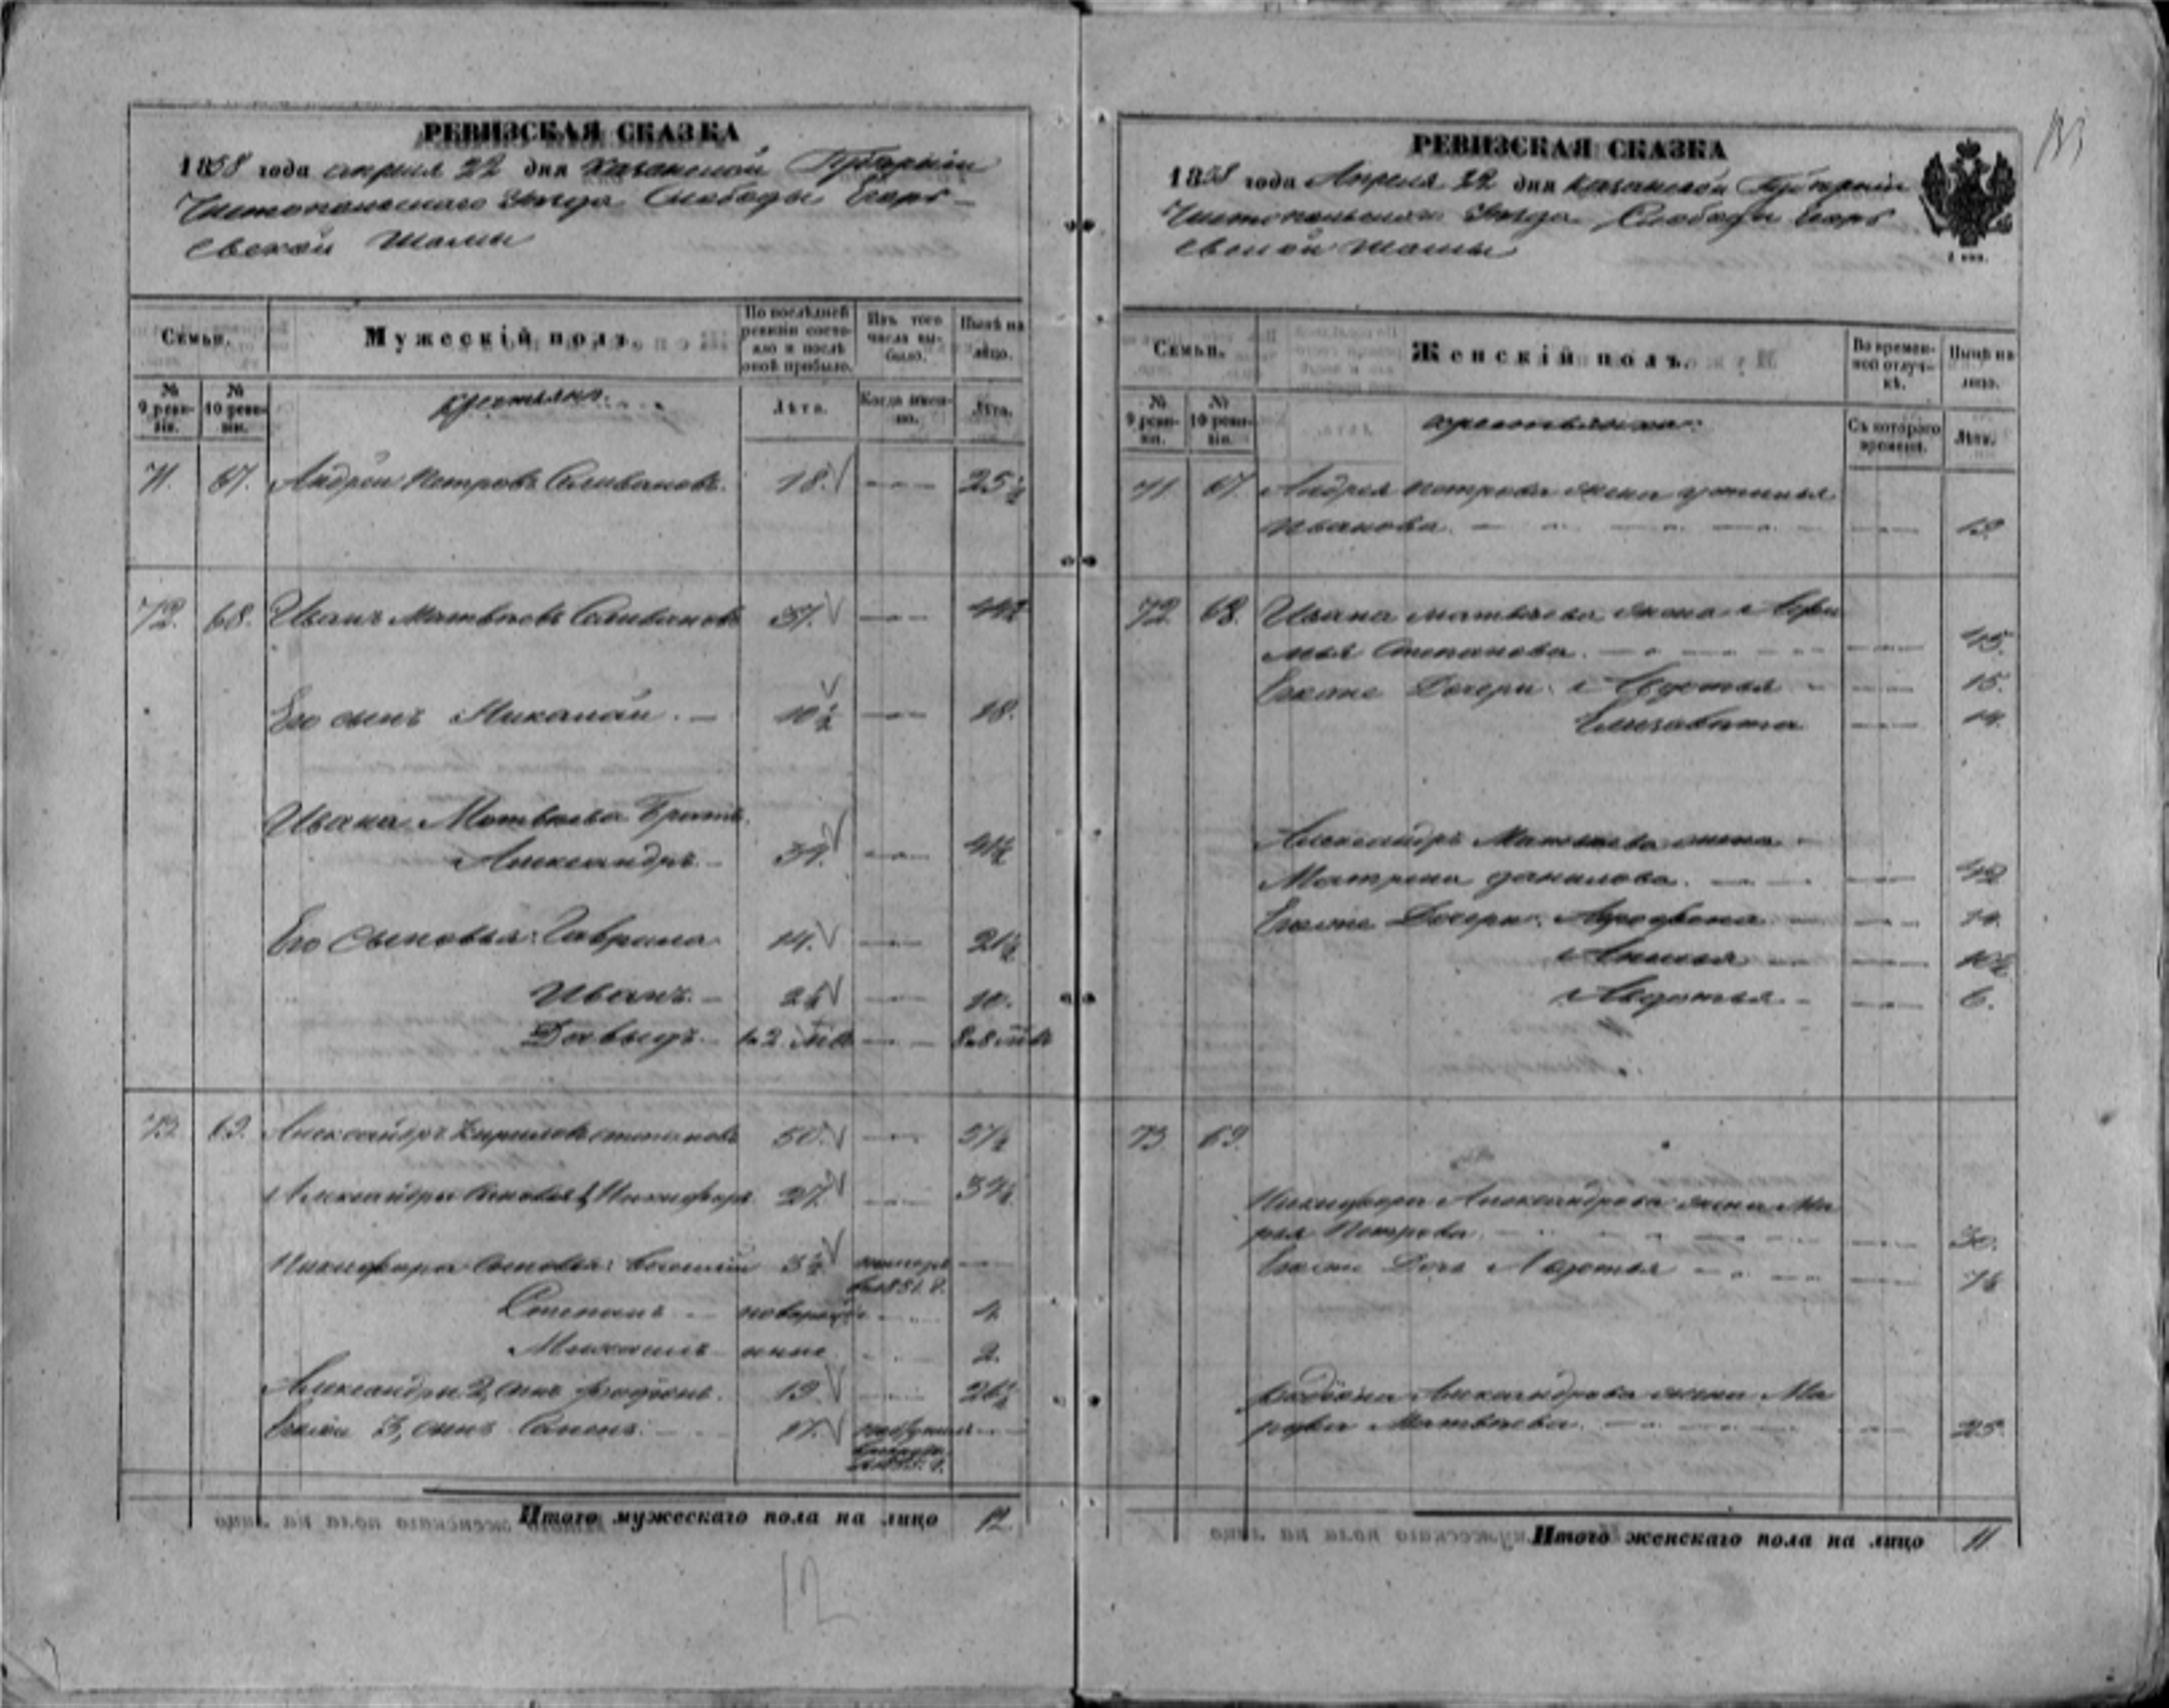 РЕВИЗСКАЯ СКАЗКА
1858 года апреля 22 дня Казанской Губернии
Чистопольскаго Уезда Слободы Егорь-
евской
Семьи.
Мужескій полъ.
По послѣдней ревизіи состояло и послѣ оной прибыло.
Изъ того числа выбыло.
Нынѣ на лицо.
№ 9 ревизіи.
№ 10 ревизіи.
Крестьяне.
Лѣта.
Когда именно.
Лѣта.
71. 67. Андрей Петровъ Селивановъ. 18. 25½
72. 68. Иванъ Матвѣевъ Селивановъ 37. 44½
Его сынъ Николай. 10½ 18.
Ивана Матвѣева Братъ
Александръ 34. 41½
Его Сыновья: Гаврила 14. 21½
Иванъ. 2½ 10.
Давыдъ.
73. 69. Александръ Кириловъ Степановъ 50. 57½
Александра Сыновья 1, Никифоръ 27. 34½
Никифора Сыновья: Василій 3½ 1851. г.
Степанъ новорож 4.
Михаилъ
2.
Александра 2, сынъ Родіонъ. 19. 26½
3, сынъ 17.
Итого мужескаго пола на лицо 12.
12
РЕВИЗСКАЯ СКАЗКА
1858 года Апреля 22 дня Казанской Губерніи
Чистопольскаго Уезда Слободы Егорь
евской
Семьи.
Женскій полъ.
Во временной отлучкѣ.
Нынѣ на лицо.
№ 9 ревизіи.
№ 10 ревизіи.
Съ котораго времени.
Лѣта.
71 67. Андрея Петрова жена Устинья
Иванова. 19.
72 68. Ивана Матвѣева жена
Степанова. 45.
Дочери: Авдотья 15.
Елизавета 14.
Александра Матвѣева жена
Матрена Данилова. 42
Дочери:
Анисья 10½
Авдотья 6.
73. 69.
Никифора Александрова жена Ма
рья Петрова 30.
Дочь Авдотья 7½
Родіона Александрова жена Ма
Матвѣева. 25.
Итого женскаго пола на лицо 11